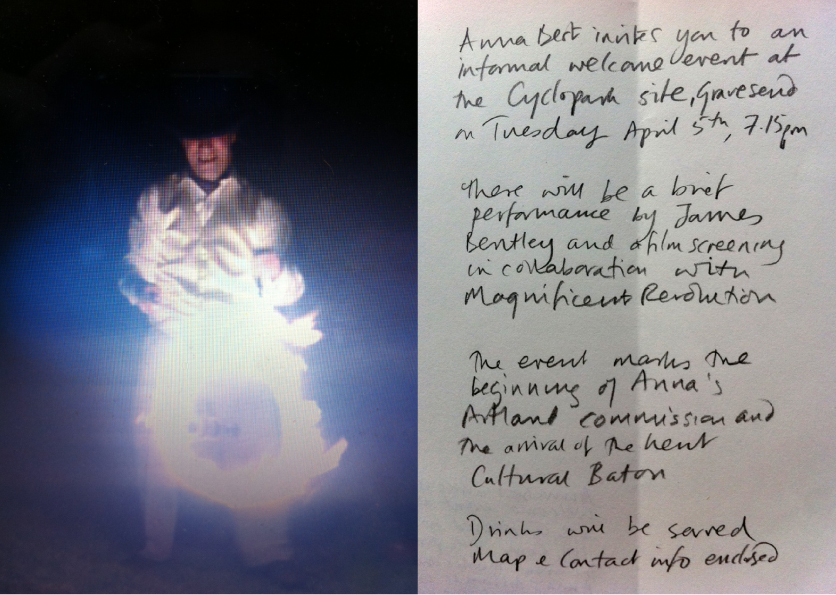 Anna Best invites you to an
informal welcome event at
the Cyclopark site, Gravesend
on Tuesday April 5th, 7.15pm
There will be a brief
performance by James
Bentley and a film screening
in collaboration with
Magnificent Revolution
The event marks the
beginning of Anna's
Artland commission and
the arrival of the Kent
Cultural Baton
Drinks will be served
Map & Contact info enclosed